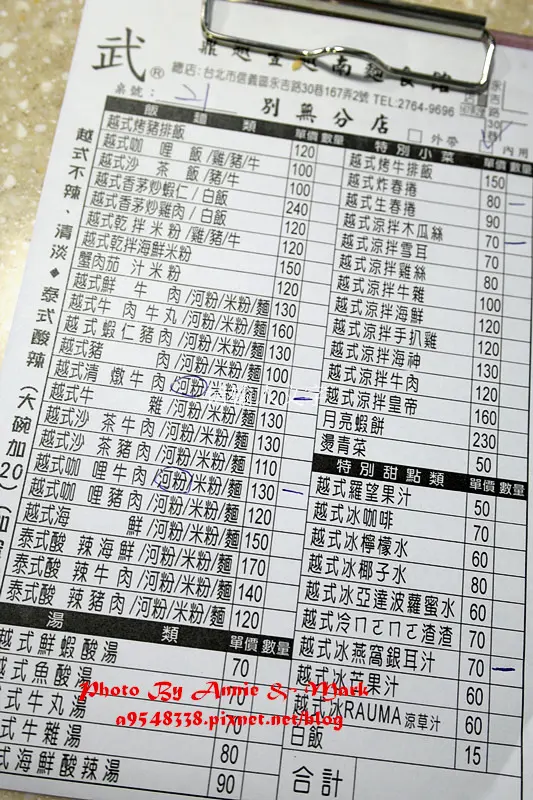 武®
鼎越豐越南麵食館
總店:台北市信義區永吉路30巷167弄2號 TEL:2764-9696
桌號:
別無分店
外帶 內用
越式不辣、清淡◆泰式酸辣(大碗加20)
飯麵類 單價 數量
越式烤豬排飯 120
越式咖哩飯/雞/豬/牛 100
越式沙茶飯/豬/牛 100
越式香茅炒蝦仁/白飯 240
越式香茅炒雞肉/白飯 120
越式乾拌米粉/雞/豬/牛 120
越式乾拌海鮮米粉 150
蟹肉茄汁米粉 120
越式鮮牛肉/河粉/米粉/麵 130
越式牛肉牛丸/河粉/米粉/麵 160
越式蝦仁豬肉/河粉/米粉/麵 130
越式豬肉/河粉/米粉/麵 100
越式清燉牛肉/河粉/米粉/麵 120
越式牛雜/河粉/米粉/麵 130
越式沙茶牛肉/河粉/米粉/麵 130
越式沙茶豬肉/河粉/米粉/麵 110
越式咖哩牛肉/河粉/米粉/麵 130
越式咖哩豬肉/河粉/米粉/麵 120
越式海鮮/河粉/米粉/麵 150
泰式酸辣海鮮/河粉/米粉/麵 170
泰式酸辣牛肉/河粉/米粉/麵 140
泰式酸辣豬肉/河粉/米粉/麵 120
湯類 單價 數量
越式鮮蝦酸湯 70
越式魚酸湯 70
式牛丸湯 70
式牛雜湯 80
式海鮮酸辣湯 90
特別小菜 單價 數量
越式烤牛排飯 150
越式炸春捲 80
越式生春捲 90
越式涼拌木瓜絲 70
越式涼拌雪耳 80
越式涼拌雞絲 100
越式涼拌牛雜 120
越式涼拌海鮮 120
越式涼拌手扒雞 130
越式涼拌海神 120
越式涼拌牛肉 120
越式涼拌皇帝 160
月亮蝦餅 230
燙青菜 50
特別甜點類 單價 數量
越式羅望果汁 50
越式冰咖啡 70
越式冰檸檬水 60
越式冰椰子水 80
越式冰亞達波蘿蜜水 60
越式冷ㄇㄛㄇㄛ渣渣 70
越式冰燕窩銀耳汁 70
越式冰芒果汁 60
越式冰RAUMA涼草汁 60
白飯 15
合計
Photo By Annie & Mark
a9548338.pixnet.net/blog